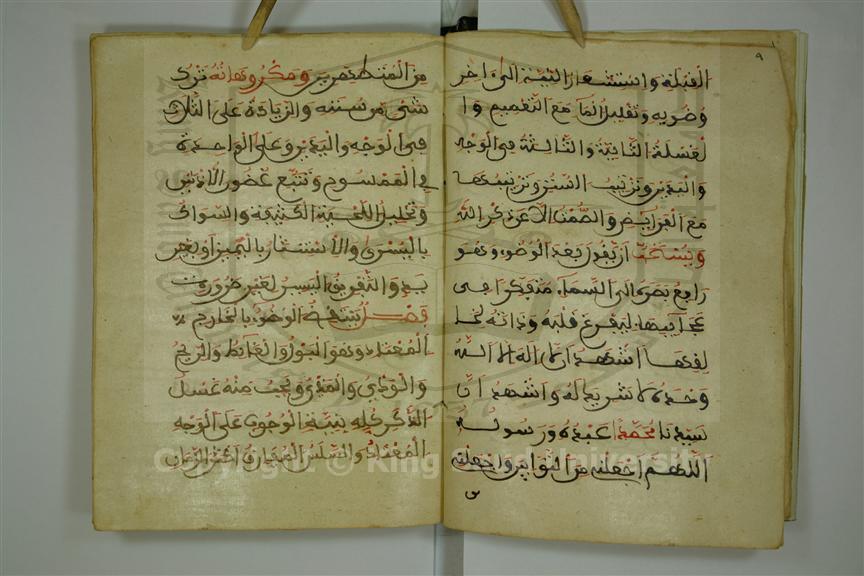 ٩
القبلة واستشعار النية الى ءاخر
وضويه وتقليل الما مع التعميم وا
لغسلة الثانية والثالثة في الوجه
واليدين وترتيب السنن وترتيبها
مع الفرايض والصمت الا عن ذكر الله
ويستحب ان يقول بعد الوضوء وهو
رافع بصره الى السماء متفكرا في
عجايبها ليفرغ قلبه وذاته لخا
لقها اشهد ان لا اله الا الله
وحده لا شريك له واشهد ان
سيدنا محمدا عبده ورسوله
اللهم اجعلنى من التوابين واجعلنى
من
من المتطهرين ومكروهاته ترك
شيء من سننه والزيادة على الثلاث
في الوجه واليدين وعلى الواحدة
في الممسوح وتتبع غضون الاذنين
وتخليل اللحية الكثيفة والسواك
باليسرى والاستنثار باليمين او بغير
يد والتفريق اليسير لغير ضرورة
فصل ينتقض الوضوء بالخارج
المعتاد وهو البول والغائط والريح
والودي والمذي ويجب منه غسل
الذكر كله بنية الوجوب على الوجه
المعتاد والسلس المفارق اكثر الزمان
Copyright © King Saud University